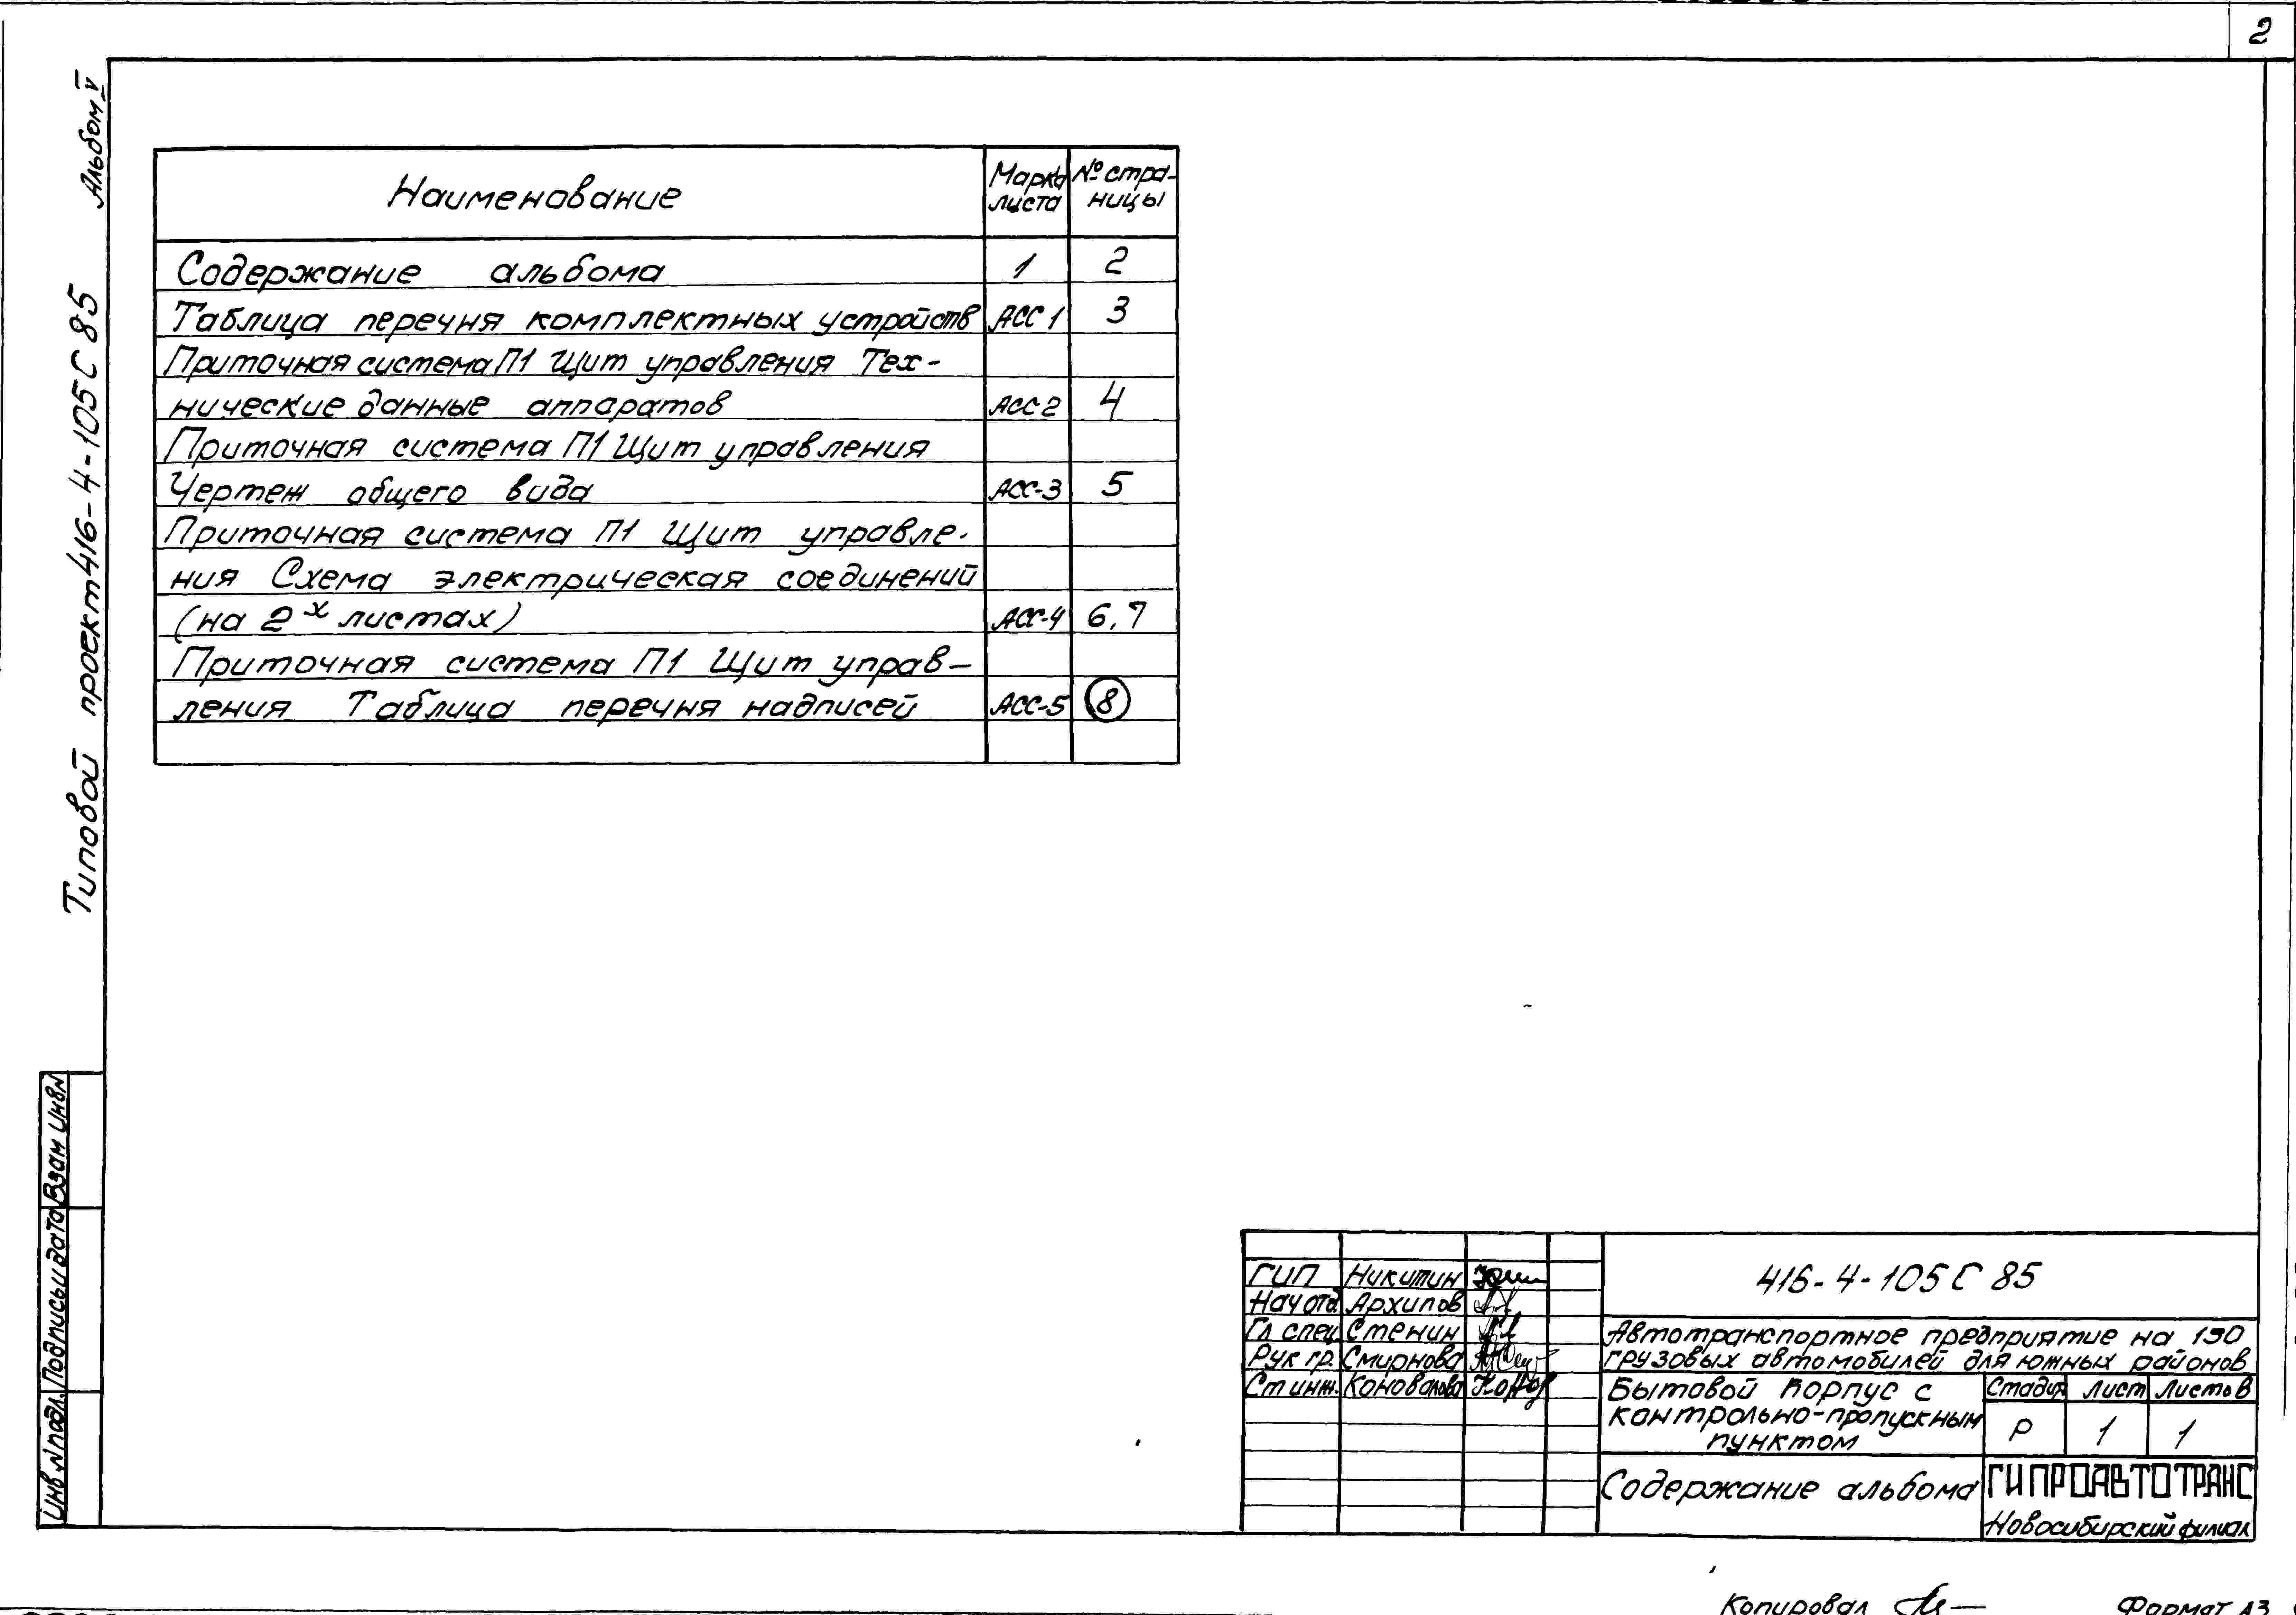 2
Альбом V
Типовой проект 416-4-105 С 85
Наименование
Марка листа
№ стра-
ницы
Содержание альбома 1 2
Таблица перечня комплектных устройств АСС 1 3
Приточная система П1 Щит управления Тех-
нические данные аппаратов АСС 2 4
Приточная система П1 Щит управления
Чертеж общего вида АСС-3 5
Приточная система П1 Щит управле-
ния Схема электрическая соединений
(на 2х листах) АСС-4 6,7
Приточная система П1 Щит управ-
ления Таблица перечня надписей АСС-5 8
Взам инв.N
Подпись и дата
Инв. N подл.
ГИП Никитин
Нач отд. Архипов
Гл спец. Стенин
Рук гр. Смирнова
Ст инж. Коновалова
416-4-105 С 85
Автотранспортное предприятие на 150
грузовых автомобилей для южных районов
Бытовой корпус с
контрольно-пропускным
пунктом
Стадия Лист Листов
Р 1 1
Содержание альбома
ГИПРОАВТОТРАНС
Новосибирский филиал
Копировал
Формат А3